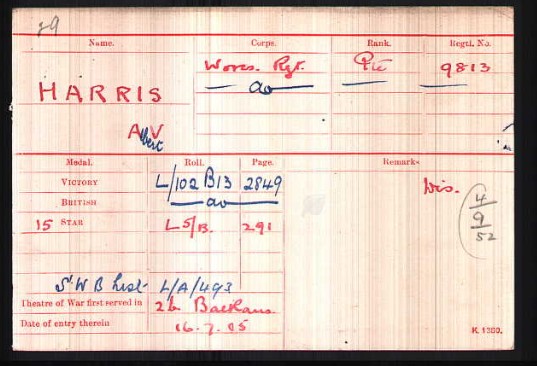 29
Name. Corps. Rank. Regtl. No.
HARRIS Worcs. Rgt. Pte 9813
— do —
A V
lbert
Medal. Roll. Page. Remarks
VICTORY L/102 B13 2849 Dis.
BRITISH — do —
15 STAR L5/B. 291
4/9/52
S.W.B List L/A/493
Theatre of War first served in 2b Balkans
Date of entry therein 16.7.05
K 1380.